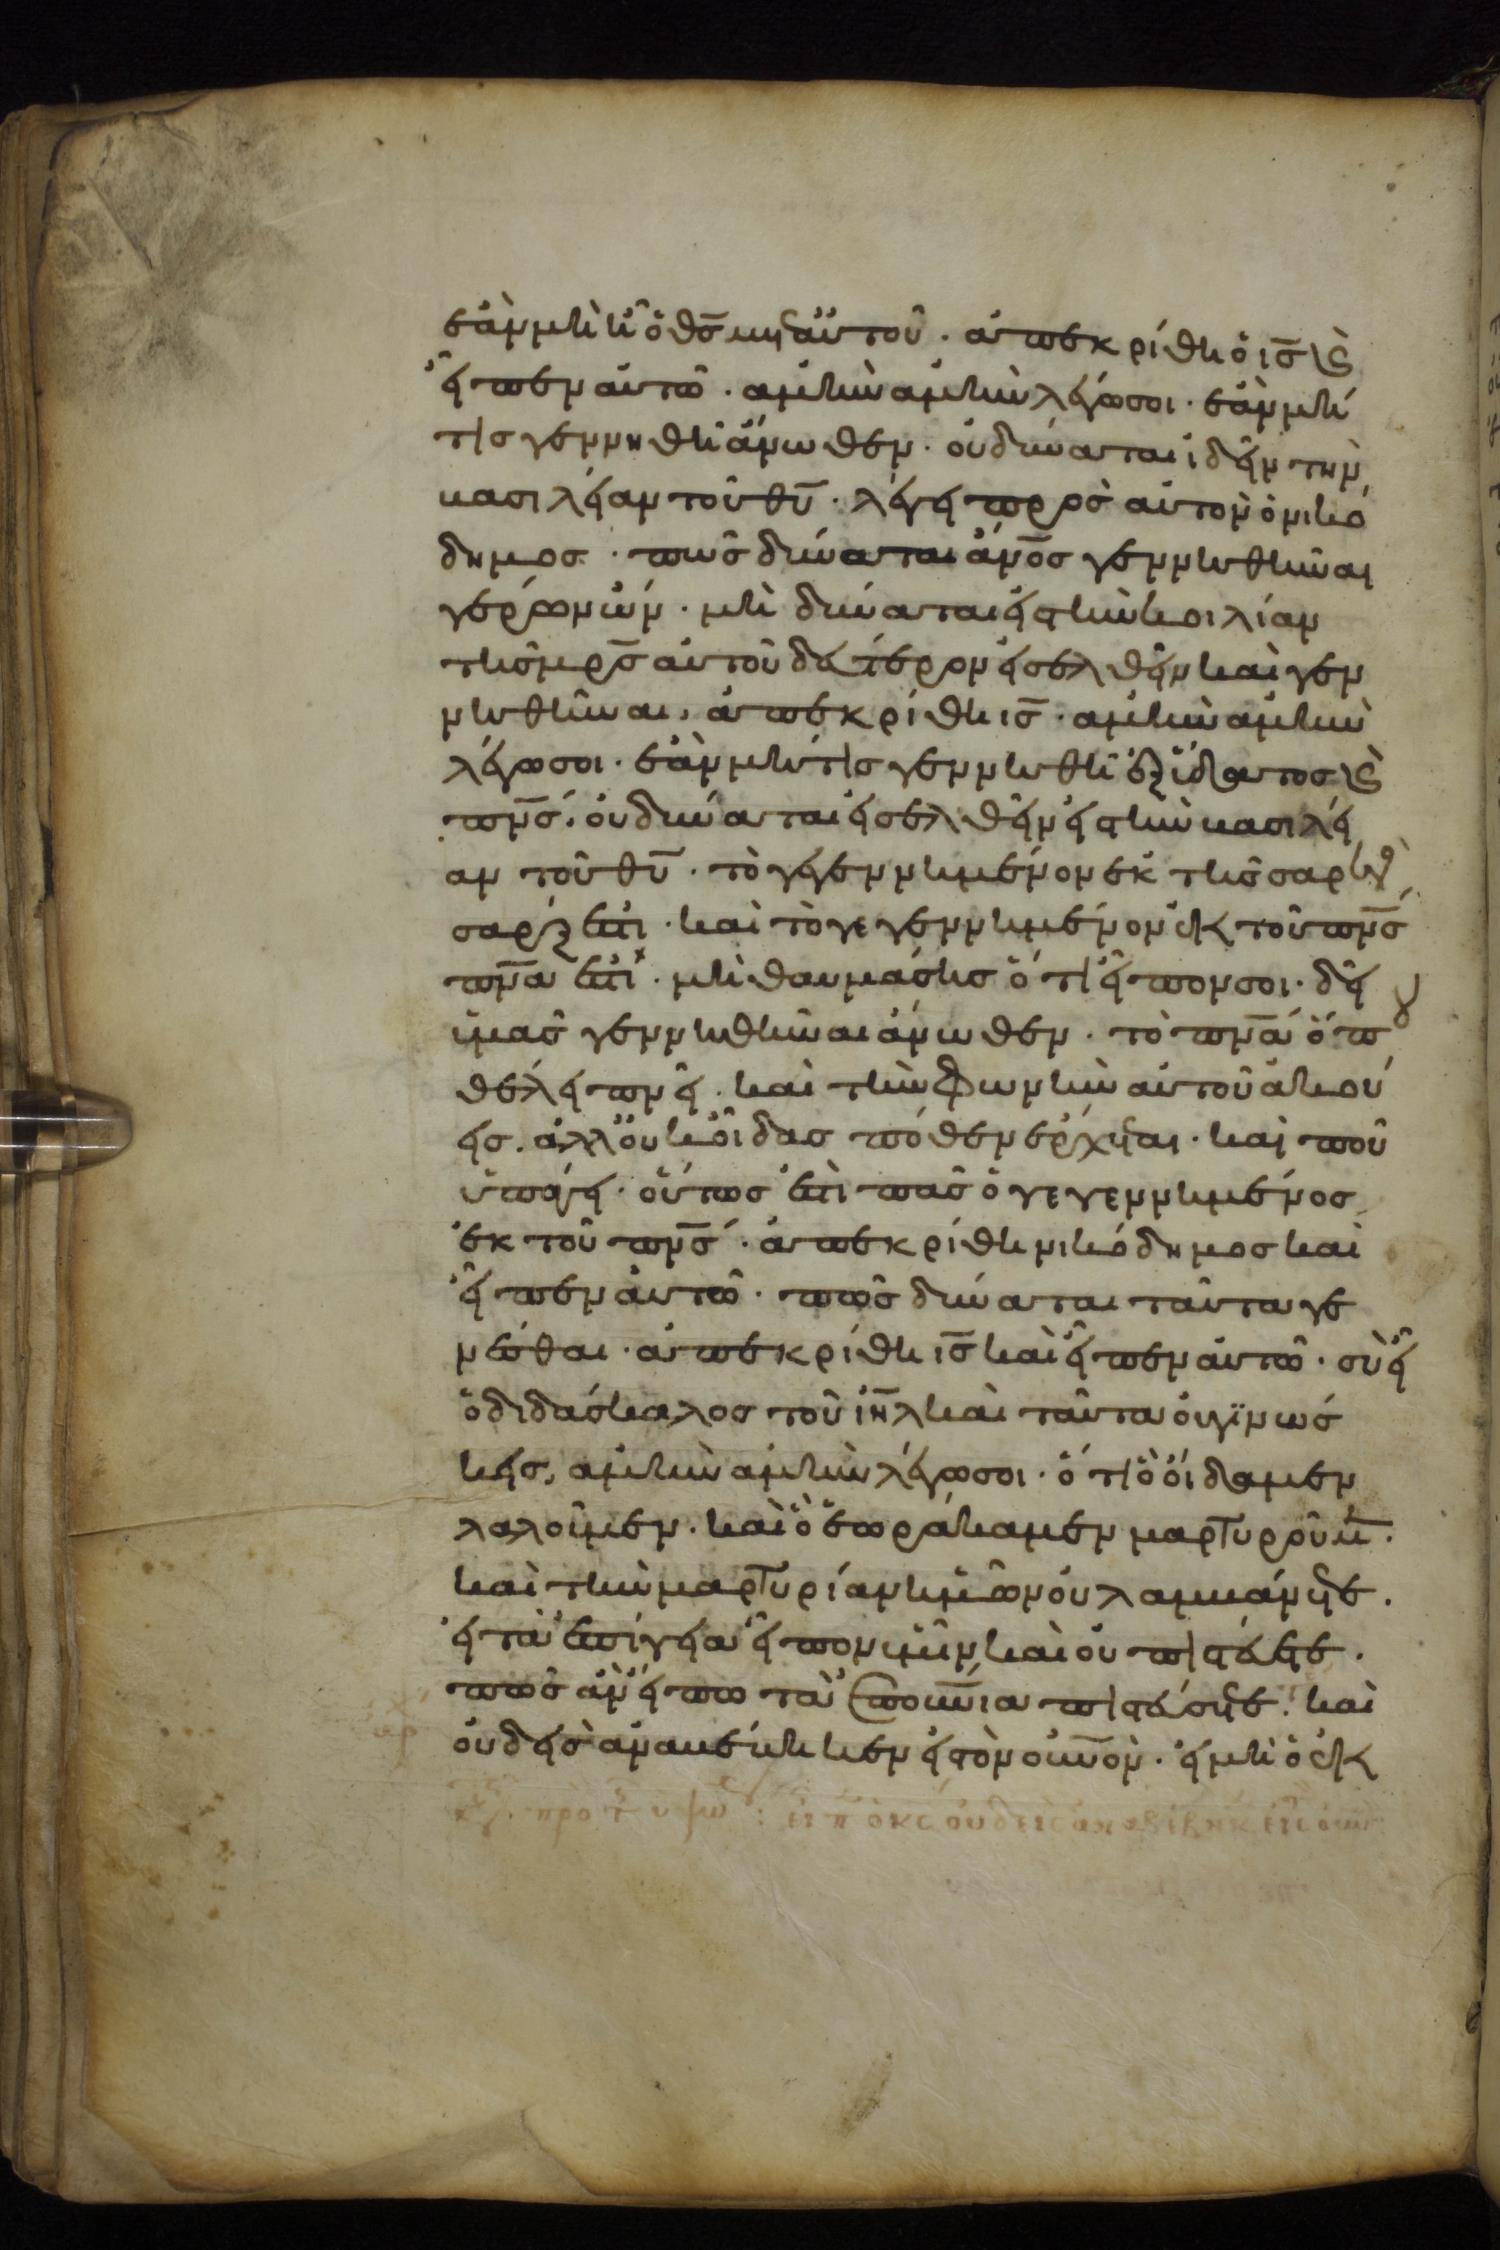 ἐὰν μὴ ἦ ὁ θ̅ς̅ μετ' αὐτοῦ · ἀπεκρίθη ὁ ι̅ς̅ κ(αὶ)
εἶπεν αὐτῶ · ἀμὴν ἀμὴν λέγω σοι · ἐὰν μή
τις γεννηθῆ ἄνωθεν · οὐ δύναται ἰδεῖν τὴν
βασιλείαν τοῦ θ̅υ̅ · λέγει πρὸς αὐτὸν ὁ νικό
δημος · πῶς δύναται ἄν̅ο̅ς̅ γεννηθῆναι
γέρων ὤν · μὴ δύναται εἰς τὴν κοιλίαν
τῆς μ̅ρ̅ς̅ αὐτοῦ δεύτερον εἰσελθεῖν καὶ γεν
νηθῆναι · ἀπεκρίθη ι̅ς̅ · ἀμὴν ἀμὴν
λέγω σοι · ἐὰν μή τις γεννηθῆ ἐξ ὕδατος κ(αὶ)
π̅ν̅ς̅ · οὐ δύναται εἰσελθεῖν εἰς τὴν βασιλεί
αν τοῦ θ̅υ̅ · τὸ γεγεννημένον ἐκ τῆς σαρκὸς
σάρξ ἐστι · καὶ τὸ γεγεννημένον ἐκ τοῦ π̅ν̅ς̅
π̅ν̅α̅ ἐστι · μὴ θαυμάσης ὅτι εἶπόν σοι · δεῖ
ὑμᾶς γεννηθῆναι ἄνωθεν · τὸ π̅ν̅α̅ ὅπου
θέλει πνεῖ · καὶ τὴν φωνὴν αὐτοῦ ἀκού
εις · ἀλλ' οὐκ οἶδας πόθεν ἔρχεται · καὶ ποῦ
ὑπάγει · οὕτως ἐστὶ πᾶς ὁ γεγεννημένος
ἐκ τοῦ π̅ν̅ς̅ · ἀπεκρίθη νικόδημος καὶ
εἶπεν αὐτῶ · πῶς δύναται ταῦτα γε
νέσθαι · ἀπεκρίθη ι̅ς̅ καὶ εἶπεν αὐτῶ · σὺ εἶ
ὁ διδάσκαλος τοῦ ι̅η̅λ̅ καὶ ταῦτα οὐ γινώσ
κεις · ἀμὴν ἀμὴν λέγω σοι · ὅτι ὃ οἴδαμεν
λαλοῦμεν · καὶ ὃ ἑωράκαμεν μαρτυροῦμεν ·
καὶ τὴν μαρτυρίαν ἡμῶν οὐ λαμβάνετε ·
εἰ τὰ ἐπίγεια εἶπον ὑμῖν καὶ οὐ πιστεύετε ·
πῶς ἐὰν εἴπω τὰ ἐπου̅ν̅ια πιστεύσετε · καὶ
οὐδεὶς ἀναβέβηκεν εἰς τὸν ου̅ν̅ο̅ν̅ · εἰ μὴ ὁ ἐκ
πρὸ τ ὑψω : εἶπ ὁ κς οὐδεὶς ἀναβέβηκ εἰς